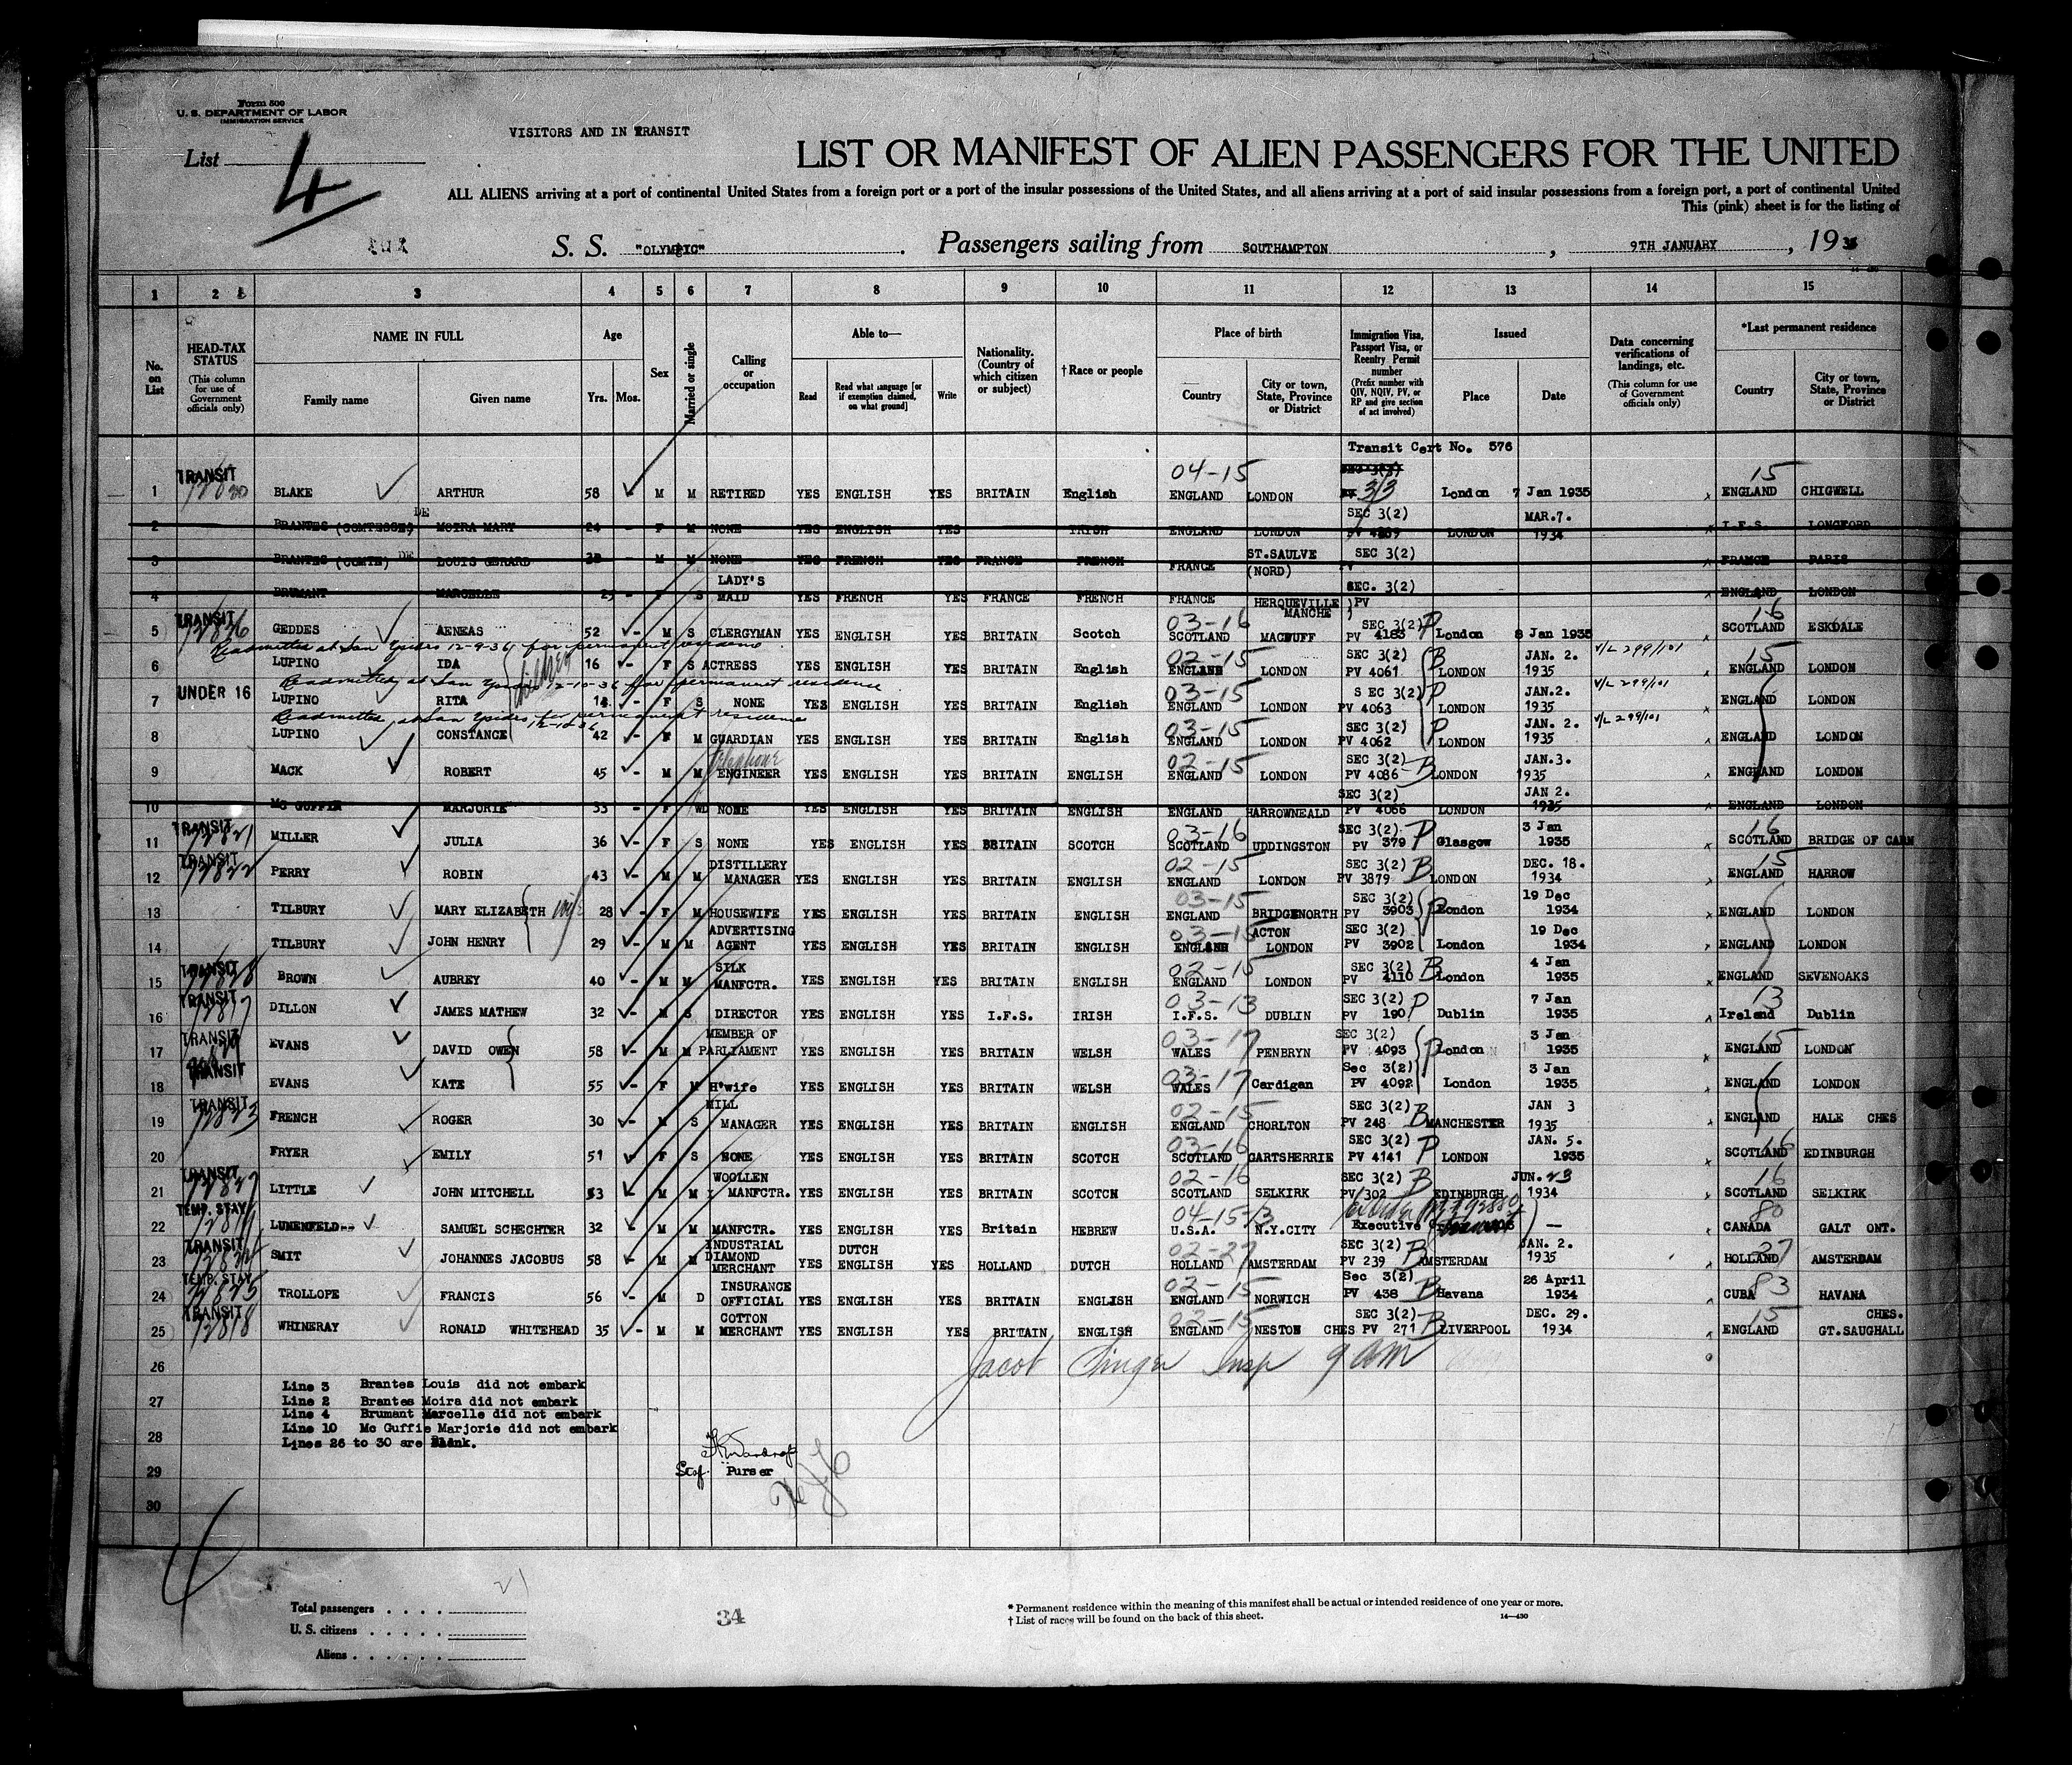 Form 500
U. S. DEPARTMENT OF LABOR
IMMIGRATION SERVICE
VISITORS AND IN TRANSIT
List 4
LIST OR MANIFEST OF ALIEN PASSENGERS FOR THE UNITED
ALL ALIENS arriving at a port of continental United States from a foreign port or a port of the insular possessions of the United States, and all aliens arriving at a port of said insular possessions from a foreign port, a port of continental United
This (pink) sheet is for the listing of
S. S. "OLYMPIC". Passengers sailing from SOUTHAMPTON, 9TH JANUARY, 19
14—430
1 2 3 4 5 6 7 8 9 10 11 12 13 14 15
No. on List
HEAD-TAX STATUS (This column for use of Government officials only)
NAME IN FULL Family name Given name
Age Yrs. Mos.
Sex
Married or single
Calling or occupation
Able to— Read Read what language [or if exemption claimed, on what ground] Write
Nationality. (Country of which citizen or subject)
†Race or people
Place of birth Country City or town, State, Province or District
Immigration Visa, Passport Visa, or Reentry Permit number (Prefix number with QIV, NQIV, PV, or RP and give section of act involved)
Issued Place Date
Data concerning verifications of landings, etc. (This column for use of Government officials only)
*Last permanent residence Country City or town, State, Province or District
Transit Cert No. 576
TRANSIT 04-15 15
1 BLAKE ARTHUR 58 M M RETIRED YES ENGLISH YES BRITAIN English ENGLAND LONDON 3/3 London 7 Jan 1935 ENGLAND CHIGWELL
2 BRANTES (COMTESSE) DE MOIRA MARY 24 - F M NONE YES ENGLISH YES IRISH ENGLAND LONDON SEC 3(2) PV LONDON MAR.7. 1934 I.F.S. LONGFORD
3 BRANTES (COMTE) DE LOUIS GERARD - M M NONE YES FRENCH YES FRANCE FRENCH FRANCE ST.SAULVE (NORD) SEC 3(2) PV FRANCE PARIS
4 BRUMANT MARCELLE 25 - F S LADY'S MAID YES FRENCH YES FRANCE FRENCH FRANCE HERQUEVILLE MANCHE SEC. 3(2) PV ENGLAND LONDON
TRANSIT 03-16 16
5 GEDDES AENEAS 52 - M S CLERGYMAN YES ENGLISH YES BRITAIN Scotch SCOTLAND MACDUFF SEC 3(2) PV 4183 P London 8 Jan 1935 SCOTLAND ESKDALE
Readmitted at San Ysidro 12-9-36 for permanent residence
6 LUPINO IDA 16 - F S ACTRESS YES ENGLISH YES BRITAIN English 02-15 ENGLAND LONDON SEC 3(2) PV 4061 B LONDON JAN. 2. 1935 V/L 299/101 15 ENGLAND LONDON
Readmitted at San Ysidro 12-10-36 for permanent residence
7 UNDER 16 LUPINO RITA 14 - F S NONE YES ENGLISH YES BRITAIN English 03-15 ENGLAND LONDON SEC 3(2) PV 4063 P LONDON JAN.2. 1935 V/L 299/101 ENGLAND LONDON
Readmitted at San Ysidro for permanent residence 12-10-36
8 LUPINO CONSTANCE 42 - F M GUARDIAN YES ENGLISH YES BRITAIN English 03-15 ENGLAND LONDON SEC 3(2) PV 4062 P LONDON JAN. 2. 1935 V/L 299/101 ENGLAND LONDON
9 MACK ROBERT 45 - M M telephone ENGINEER YES ENGLISH YES BRITAIN ENGLISH 02-15 ENGLAND LONDON SEC 3(2) PV 4086 B LONDON JAN.3. 1935 ENGLAND LONDON
10 MC GUFFIE MARJORIE 33 - F WD NONE YES ENGLISH YES BRITAIN ENGLISH ENGLAND HARROWNEALD SEC 3(2) PV 4066 LONDON JAN 2. 1935 ENGLAND LONDON
TRANSIT 12821
11 MILLER JULIA 36 - F S NONE YES ENGLISH YES BRITAIN SCOTCH 03-16 SCOTLAND UDDINGSTON SEC 3(2) PV 379 P Glasgow 3 Jan 1935 16 SCOTLAND BRIDGE OF CARN
TRANSIT 12822
12 PERRY ROBIN 43 - M M DISTILLERY MANAGER YES ENGLISH YES BRITAIN ENGLISH 02-15 ENGLAND LONDON SEC 3(2) PV 3879 B LONDON DEC. 18. 1934 15 ENGLAND HARROW
13 TILBURY MARY ELIZABETH wife 28 - F M HOUSEWIFE YES ENGLISH YES BRITAIN ENGLISH 03-15 ENGLAND BRIDGENORTH SEC 3(2) PV 3903 P London 19 Dec 1934 ENGLAND LONDON
14 TILBURY JOHN HENRY 29 - M M ADVERTISING AGENT YES ENGLISH YES BRITAIN ENGLISH 03-15 ENGLAND ACTON LONDON SEC 3(2) PV 3902 London 19 Dec 1934 ENGLAND LONDON
TRANSIT
15 BROWN AUBREY 40 - M M SILK MANFCTR. YES ENGLISH YES BRITAIN ENGLISH 02-15 ENGLAND LONDON SEC 3(2) PV 4110 B London 4 Jan 1935 ENGLAND SEVENOAKS
TRANSIT
16 DILLON JAMES MATHEW 32 - M S DIRECTOR YES ENGLISH YES I.F.S. IRISH 03-13 I.F.S. DUBLIN SEC 3(2) PV 190 P Dublin 7 Jan 1935 13 Ireland Dublin
TRANSIT
17 EVANS DAVID OWEN 58 - M M MEMBER OF PARLIAMENT YES ENGLISH YES BRITAIN WELSH 03-17 WALES PENBRYN SEC 3(2) PV 4093 P London 3 Jan 1935 15 ENGLAND LONDON
TRANSIT
18 EVANS KATE 55 - F M H'wife YES ENGLISH YES BRITAIN WELSH 03-17 WALES Cardigan Sec 3(2) PV 4092 London 3 Jan 1935 ENGLAND LONDON
TRANSIT 12823
19 FRENCH ROGER 30 - M S MILL MANAGER YES ENGLISH YES BRITAIN ENGLISH 02-15 ENGLAND CHORLTON SEC 3(2) PV 248 B MANCHESTER JAN 3 1935 ENGLAND HALE CHES
20 FRYER EMILY 51 - F S NONE YES ENGLISH YES BRITAIN SCOTCH 03-16 SCOTLAND GARTSHERRIE SEC 3(2) PV 4141 P LONDON JAN. 5. 1935 16 SCOTLAND EDINBURGH
TRANSIT
21 LITTLE JOHN MITCHELL 53 M M WOOLLEN MANFCTR. YES ENGLISH YES BRITAIN SCOTCH 02-16 SCOTLAND SELKIRK SEC 3(2) PV 302 B EDINBURGH JUN. 1934 16 SCOTLAND SELKIRK
TEMP. STAY
22 LUMENFELD-- SAMUEL SCHECHTER 32 - M M MANFCTR. YES ENGLISH YES Britain HEBREW 04-15-13 U.S.A. N.Y.CITY Executive — 80 CANADA GALT ONT.
TRANSIT
23 SMIT JOHANNES JACOBUS 58 - M M INDUSTRIAL DIAMOND MERCHANT YES DUTCH ENGLISH YES HOLLAND DUTCH 02-27 HOLLAND AMSTERDAM SEC 3(2) PV 239 B AMSTERDAM JAN. 2. 1935 27 HOLLAND AMSTERDAM
TEMP. STAY 12825
24 TROLLOPE FRANCIS 56 - M D INSURANCE OFFICIAL YES ENGLISH YES BRITAIN ENGLISH 02-15 ENGLAND NORWICH Sec 3(2) PV 438 B Havana 26 April 1934 83 CUBA HAVANA
TRANSIT 12818
25 WHINERAY RONALD WHITEHEAD 35 - M M COTTON MERCHANT YES ENGLISH YES BRITAIN ENGLISH 02-15 ENGLAND NESTON CHES SEC 3(2) PV 271 B LIVERPOOL DEC. 29. 1934 15 ENGLAND CHES. GT.SAUGHALL
26 Jacob Singer Insp 9 am
Line 3 Brantes Louis did not embark
27 Line 2 Brantes Moira did not embark
Line 4 Brumant Marcelle did not embark
Line 10 Mc Guffie Marjorie did not embark
28 Lines 26 to 30 are Blank.
29 Purser
30
21
Total passengers
U. S. citizens
Aliens
34
* Permanent residence within the meaning of this manifest shall be actual or intended residence of one year or more.
† List of races will be found on the back of this sheet.
14—430